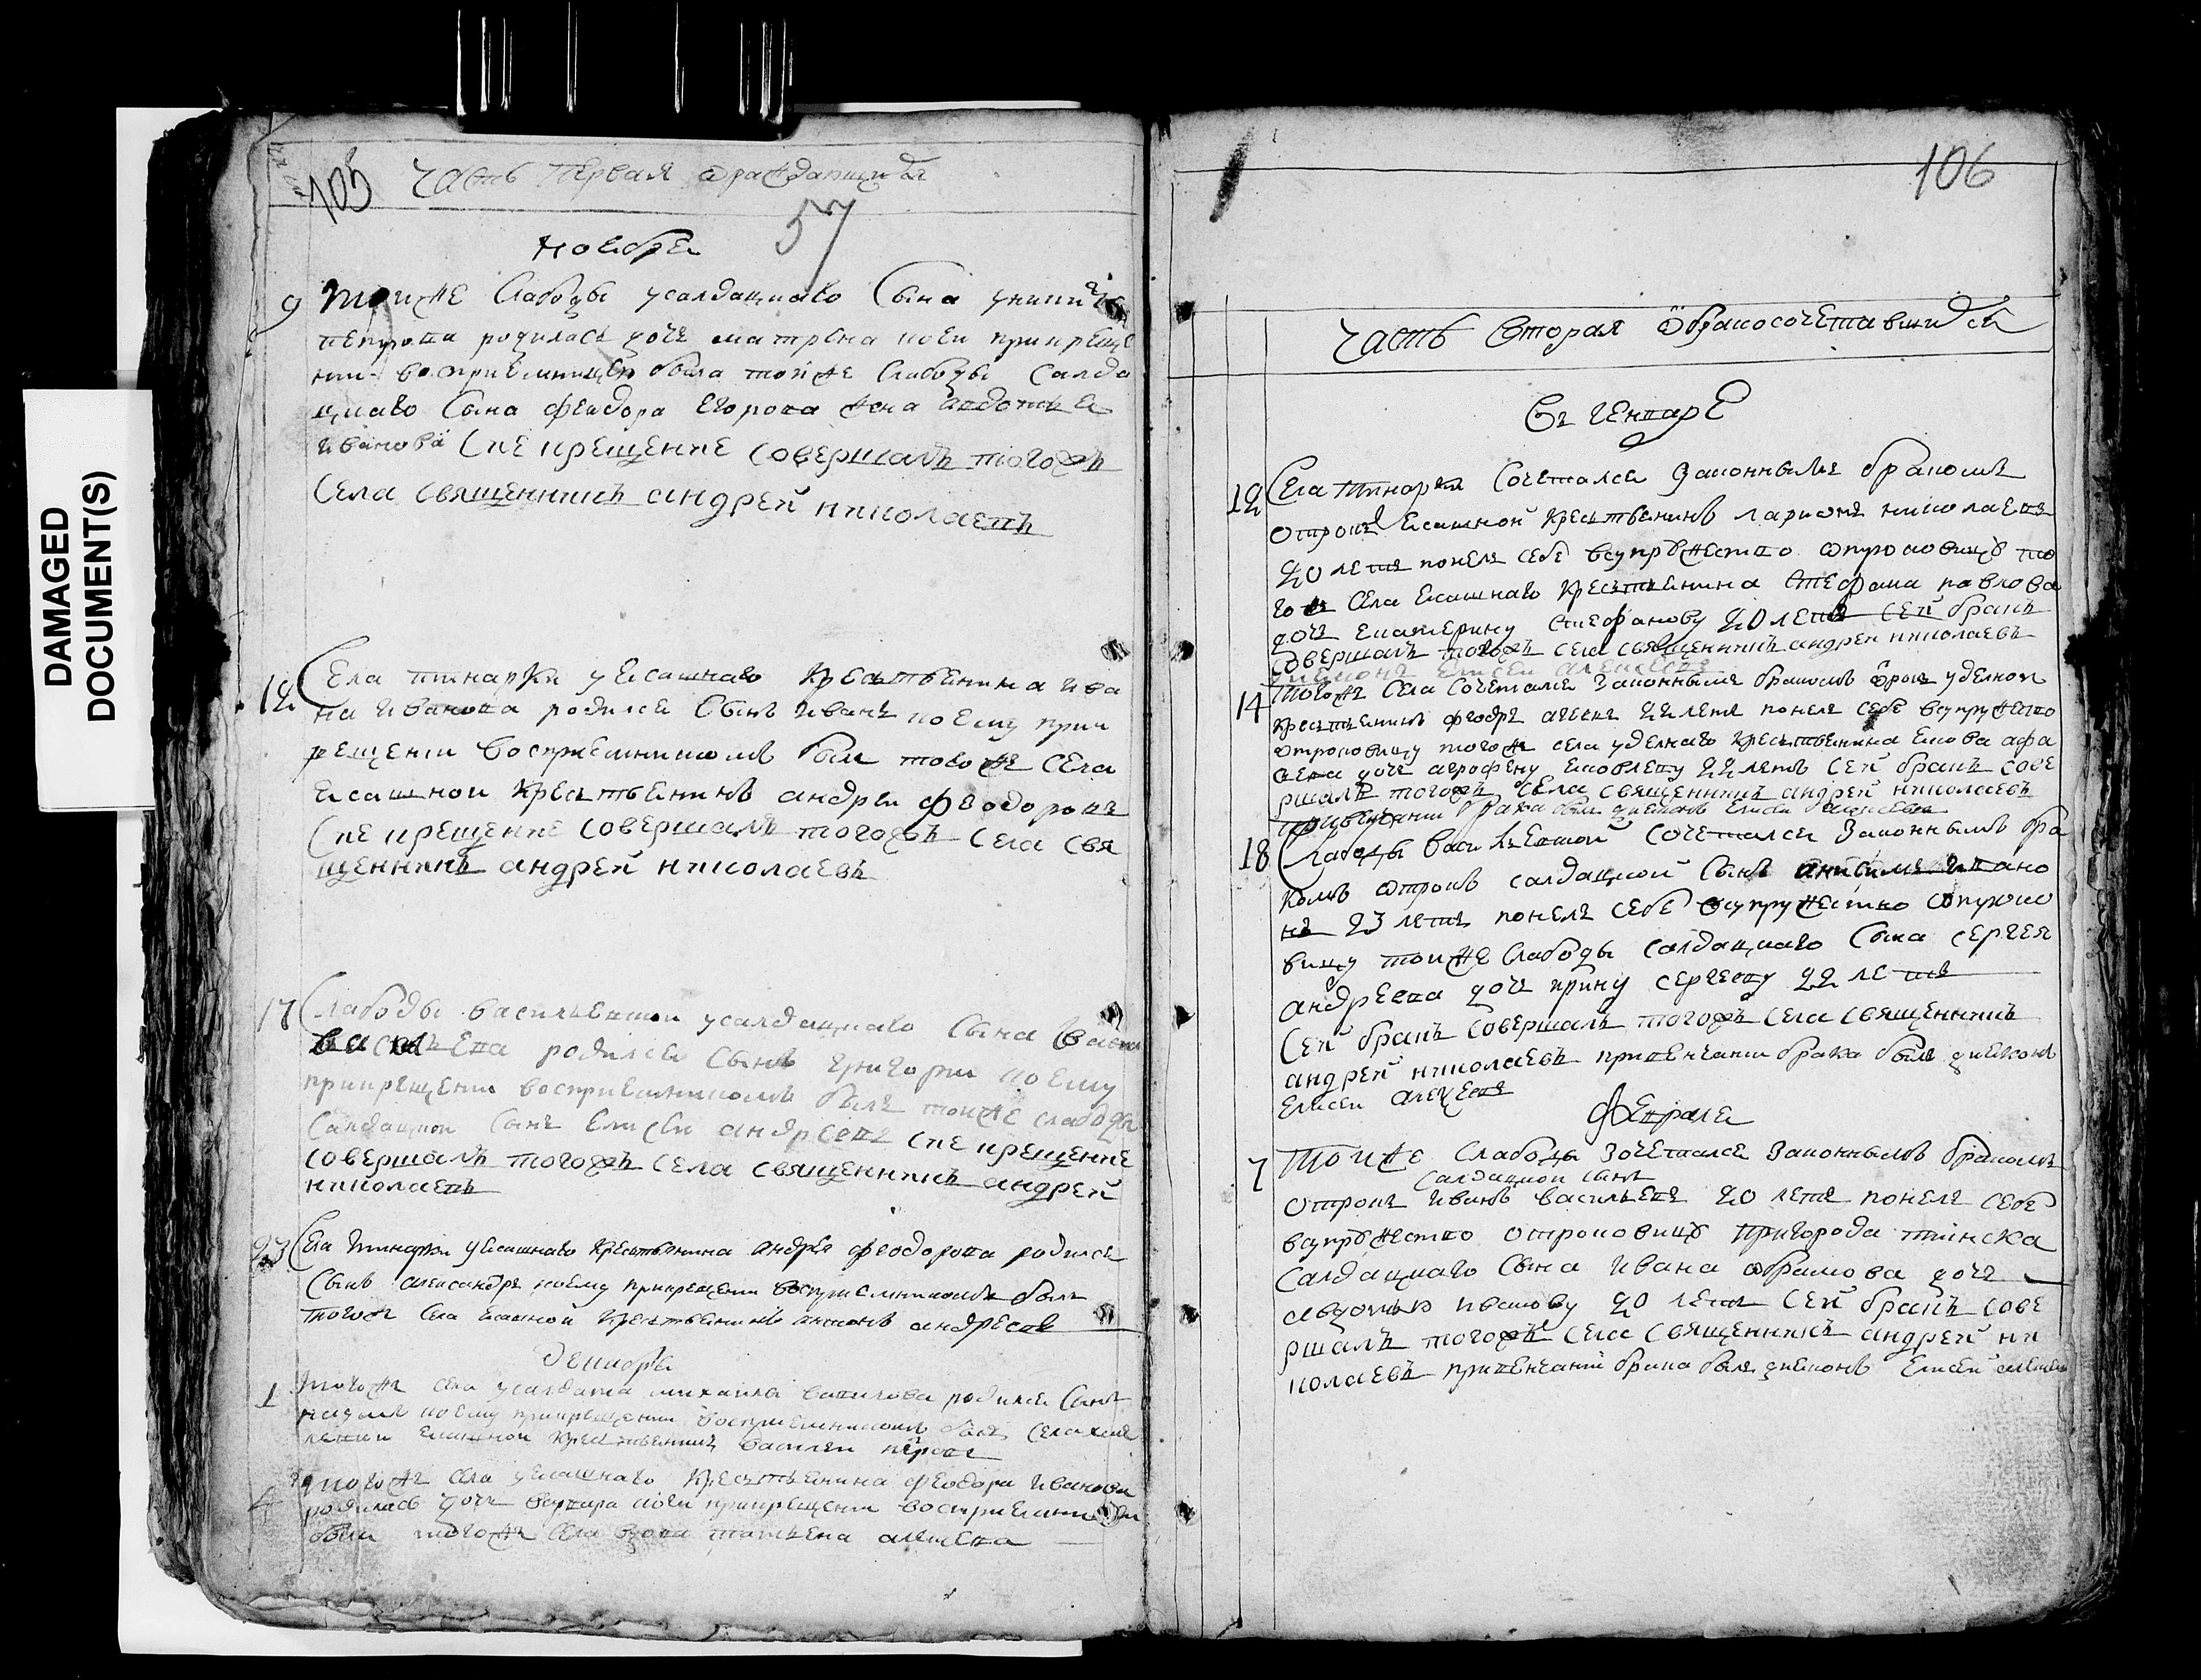 DAMAGED
DOCUMENT(S)
105 часть первая
57
ноября
9 тоиже слабоды усалдацкаго сына
петрова родилась дочь матрена ноеи прикреще
нии восприемницеи была тоиже слабоды салда
цкаго сына феодора егорова жена авдотья
иванова сие крещение совершалъ тогожъ
села священникъ андрей николаевъ
12 села тинарки уясашнаго крестьянина ива
на иванова родился сынъ иванъ коему прик
рещении восприемникомъ былъ тогоже села
ясашнои крестьянинъ андреи феодоровъ
сие крещение совершалъ тогожъ села свя
щенникъ андрей николаевъ
17 слабоды васильевкои усалдацкаго сына
васильева родился сынъ григории коему
прикрещении восприемникомъ былъ тоиже слабоды
салдацкои сынъ елисеи андреевъ сие крещение
совершалъ тогожъ села священникъ андрей
николаевъ
23 села тинарки уясашнаго крестьянина андрея феодорова родился
сынъ александръ коему прикрещении восприемникомъ былъ
тогожъ села ясашной крестьянинъ антонъ андреевъ
декабрь
1 тогожъ села усалдата михаила родился сынъ
коему прикрещении восприемникомъ былъ села
ясашнои крестьянинъ василеи
4 тогожъ села уясашнаго крестьянина феодора иванова
родилась дочь варвара коеи прикрещении восприемницеи
была тогожъ села вдова татьяна алексеева
106
часть вторая обракосочетавшихся
въ генваре
12 села тинарки сочетался законнымъ бракомъ
отрокъ ясашной крестьянинъ ларионъ николаевъ
20 летъ понелъ себе всупружество отроковицу то
гожъ села ясашнаго крестьянина стефана павлова
дочь екатерину стефанову 20 летъ сей бракъ
совершалъ тогожъ села священникъ андрей николаевъ
диаконъ елисеи алексеевъ
14 тогожъ села сочетался законнымъ бракомъ отрокъ уделнои
крестьянинъ феодръ 22 летъ понелъ себе всупружество
отроковицу тогожъ села уделнаго крестьянина якова
дочь агрофену яковлеву 22 летъ сей бракъ сове
ршалъ тогожъ села священникъ андрей николаевъ
привенчании брака былъ диаконъ елисеи алексеевъ
18 слабоды васильевкой сочетался законнымъ бра
комъ отрокъ салдацкой сынъ анисимъ ивано
въ 23 летъ понелъ себе всупружество отроко
вицу тоиже слабоды салдацкаго сына сергея
андреева дочь ирину сергееву 22 летъ
сей бракъ совершалъ тогожъ села священникъ
андрей николаевъ привенчании брака былъ диаконъ
елисеи алексеевъ
февраля
7 тоиже слабоды зочетался законнымъ бракомъ
салдацкои сынъ
отрокъ иванъ васильевъ 20 летъ понелъ себе
всупружество отроковицу пригорода тиинска
салдацкаго сына ивана абрамова дочь
авдотью иванову 20 летъ сей бракъ сове
ршалъ тогожъ села священникъ андрей ни
колаевъ привенчании брака былъ диаконъ елисеи алексеевъ